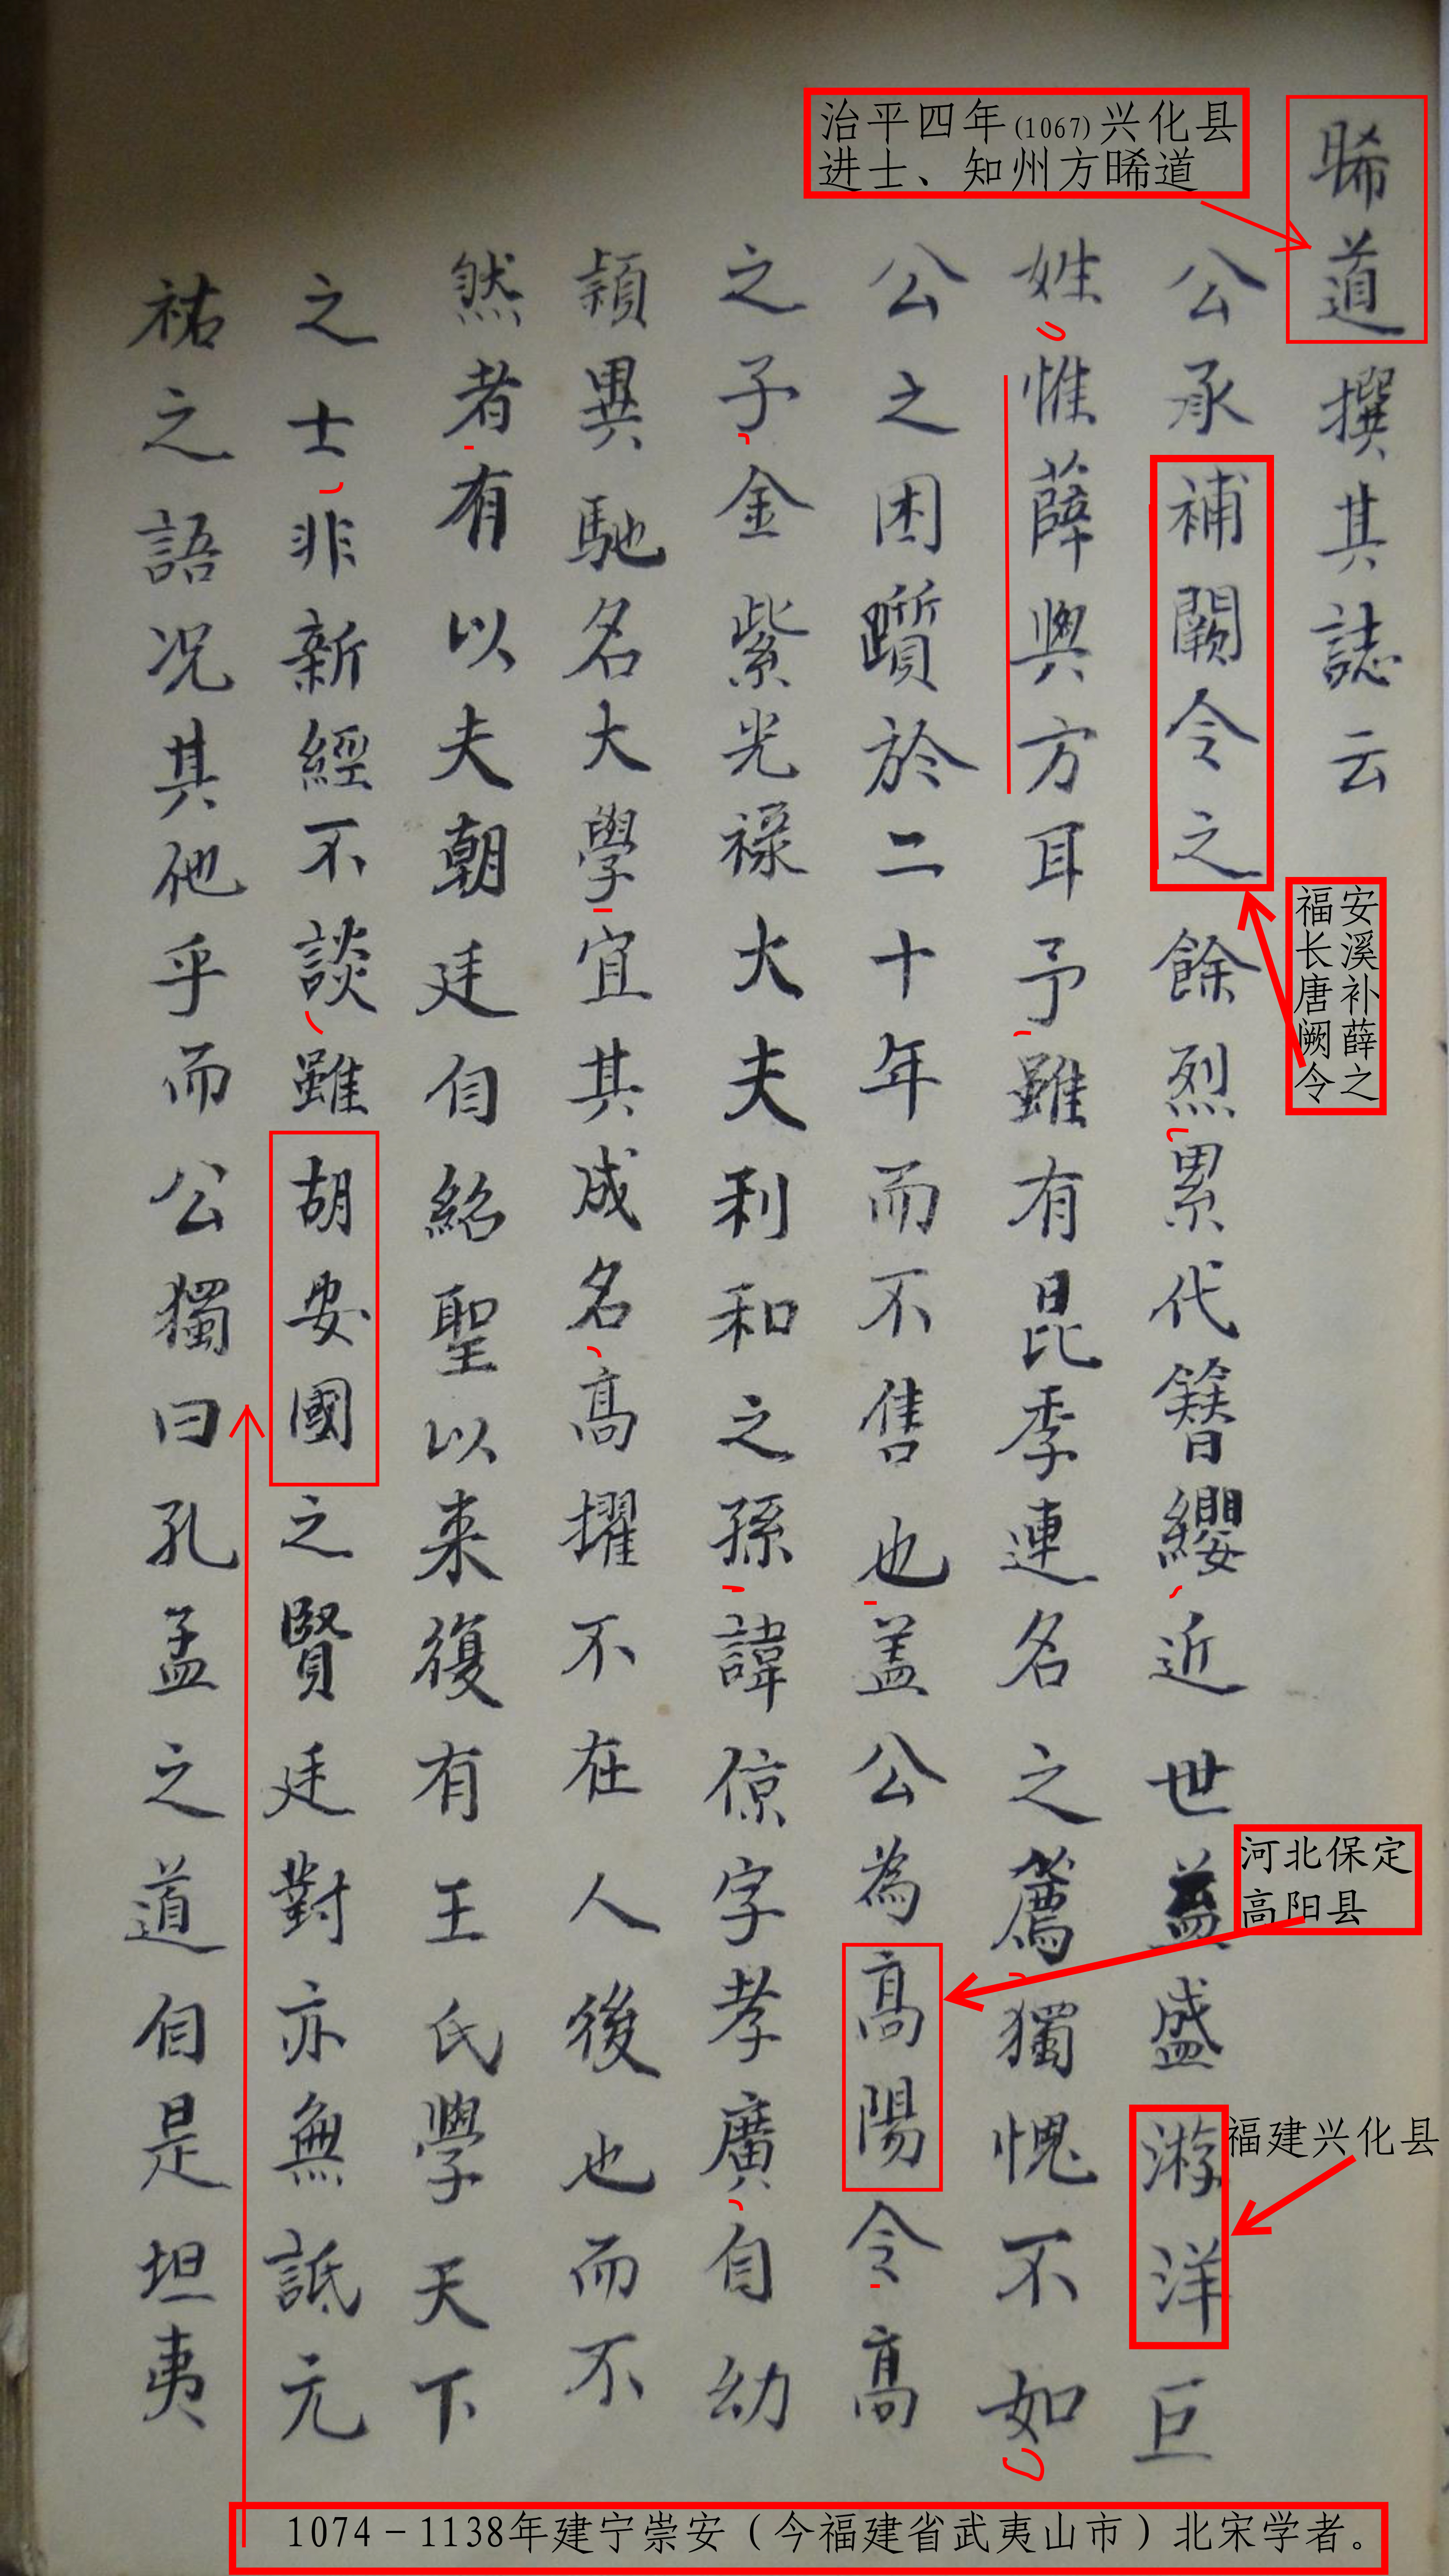 晞道撰其誌云
公承補闕令之餘烈累代簪纓近世益盛游洋巨
姓惟薛與方耳予雖有昆季連名之薦獨愧不如
公之困躓於二十年而不售也盖公為高陽令高
之子金紫光祿大夫利和之孫諱倞字孝廣自幼
頴異馳名大學宜其成名高擢不在人後也而不
然者有以夫朝廷自紹聖以来復有王氏學天下
之士非新經不談雖胡安國之賢廷對亦無詆元
祐之語况其他乎而公獨曰孔孟之道自是坦夷
治平四年(1067)兴化县
进士、知州方晞道
福安
长溪
唐补
阙薛
令之
河北保定
高阳县
福建兴化县
1074－1138年建宁崇安（今福建省武夷山市）北宋学者。